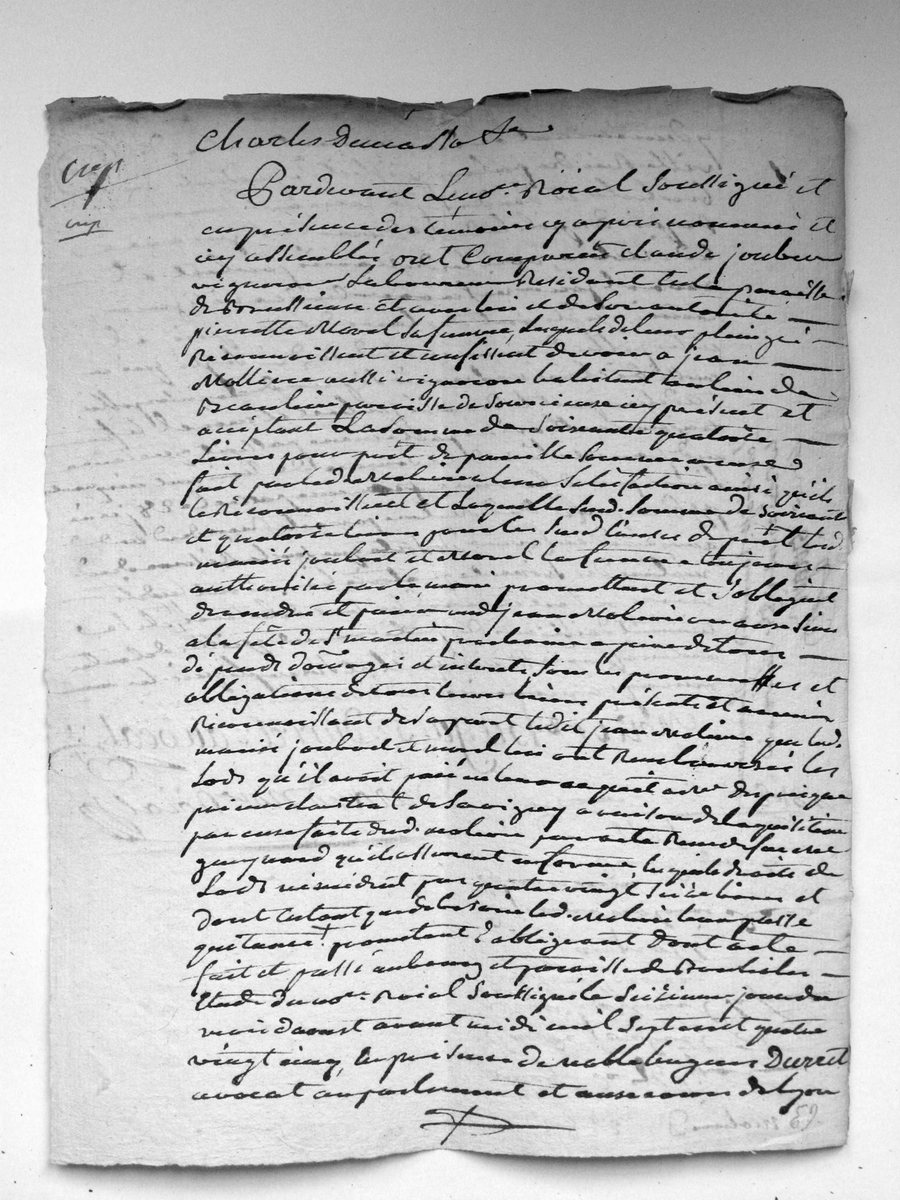 Charles Dumas
Pardevant Le no.re Roial Soussigné et
en présence des témoins cy après nommés et
icy assemblés ont Comparus Claude joubert
vigneron Laboureur Résident en la paroisse
de et avec lui et de Son autorité
pierrette Morel sa femme, Lesquels de leur plein gré
Réconnoissent et confessent devoir a jean
Molliere aussi vigneron habitant au lieu de
paroisse de Sourcieux icy présent et
acceptant La Somme de Soixante quatorze
Livres pour prêt de pareille Somme a eux
fait par led. Moliere a leur Satisfaction ainsi qu'ils
le Réconnoissent et Laquelle Susd. Somme de Soixante
et quatorze livres pour les Susd. Causes de prêt led.
mariés joubert et Morel la femme toujours
authorisée par le mari promettent et S'obligent
de rendre et païer aud. jean Moliere ou aux Siens
a la fête de St martin prochaine a peine de tous
dépends domages et interets Sous les promesses et
obligations de tous leurs biens présents et avenir
Réconnoissant de Sa part ledit jean Moliere que led.
mariés joubert et morel lui ont Remboursé les
Lods qu'il avoit païé en leur acquit
de Savigny a raison de l'aquisition
par eux faite dud. moliere par acte Reçu
guynand qu'ils assurent en forme, lesquels droits de
Lods par quatre vingt Seize livres et
Dont led. Moliere leur passe
quitance. promettant S'obligeant Dont acte
fait et passé au bourg et paroisse de
Etude du no.re Roial Soussigné le Seizieme jour du
mois d'aoust avant midi mil Sept cent quatre
vingt cinq, En présence de noble Durret
avocat en parlement et aux cours de Lyon